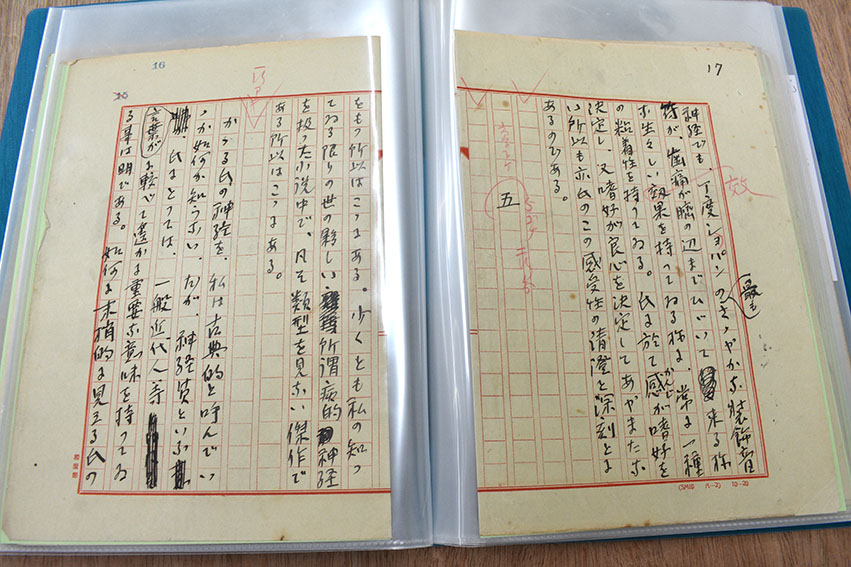 16
16
をもつ所以はこゝにある。少くとも私の知つ
てゐる限りの世の夥しい所謂病的神経
を扱つた小説中で、凡そ類型を見ない傑作で
ある所以はこゝにある。
かゝる氏の神経を、私は古典的と呼んでい
ゝか如何か知らない。だが、神経質といふ
言葉が
氏にとつては、一般近代人等
に較べて遙かに重要な意味を持つてゐ
る事は明である。如何に末梢的に見える氏の
17
神経でも、丁度ショパンの最もさゝやかな装飾音
符が、歯痛が臍の辺までひゞいて来る様
な生々しい効果を持つてゐる様に、常に一種
効
の粘着性を持つてゐる。氏に於て感が嗜好を
かんじ
決定し、又嗜好が良心を決定してあやまたな
い所以も亦氏のこの感受性の清澄と深刻とに
あるのである。
五
10-20